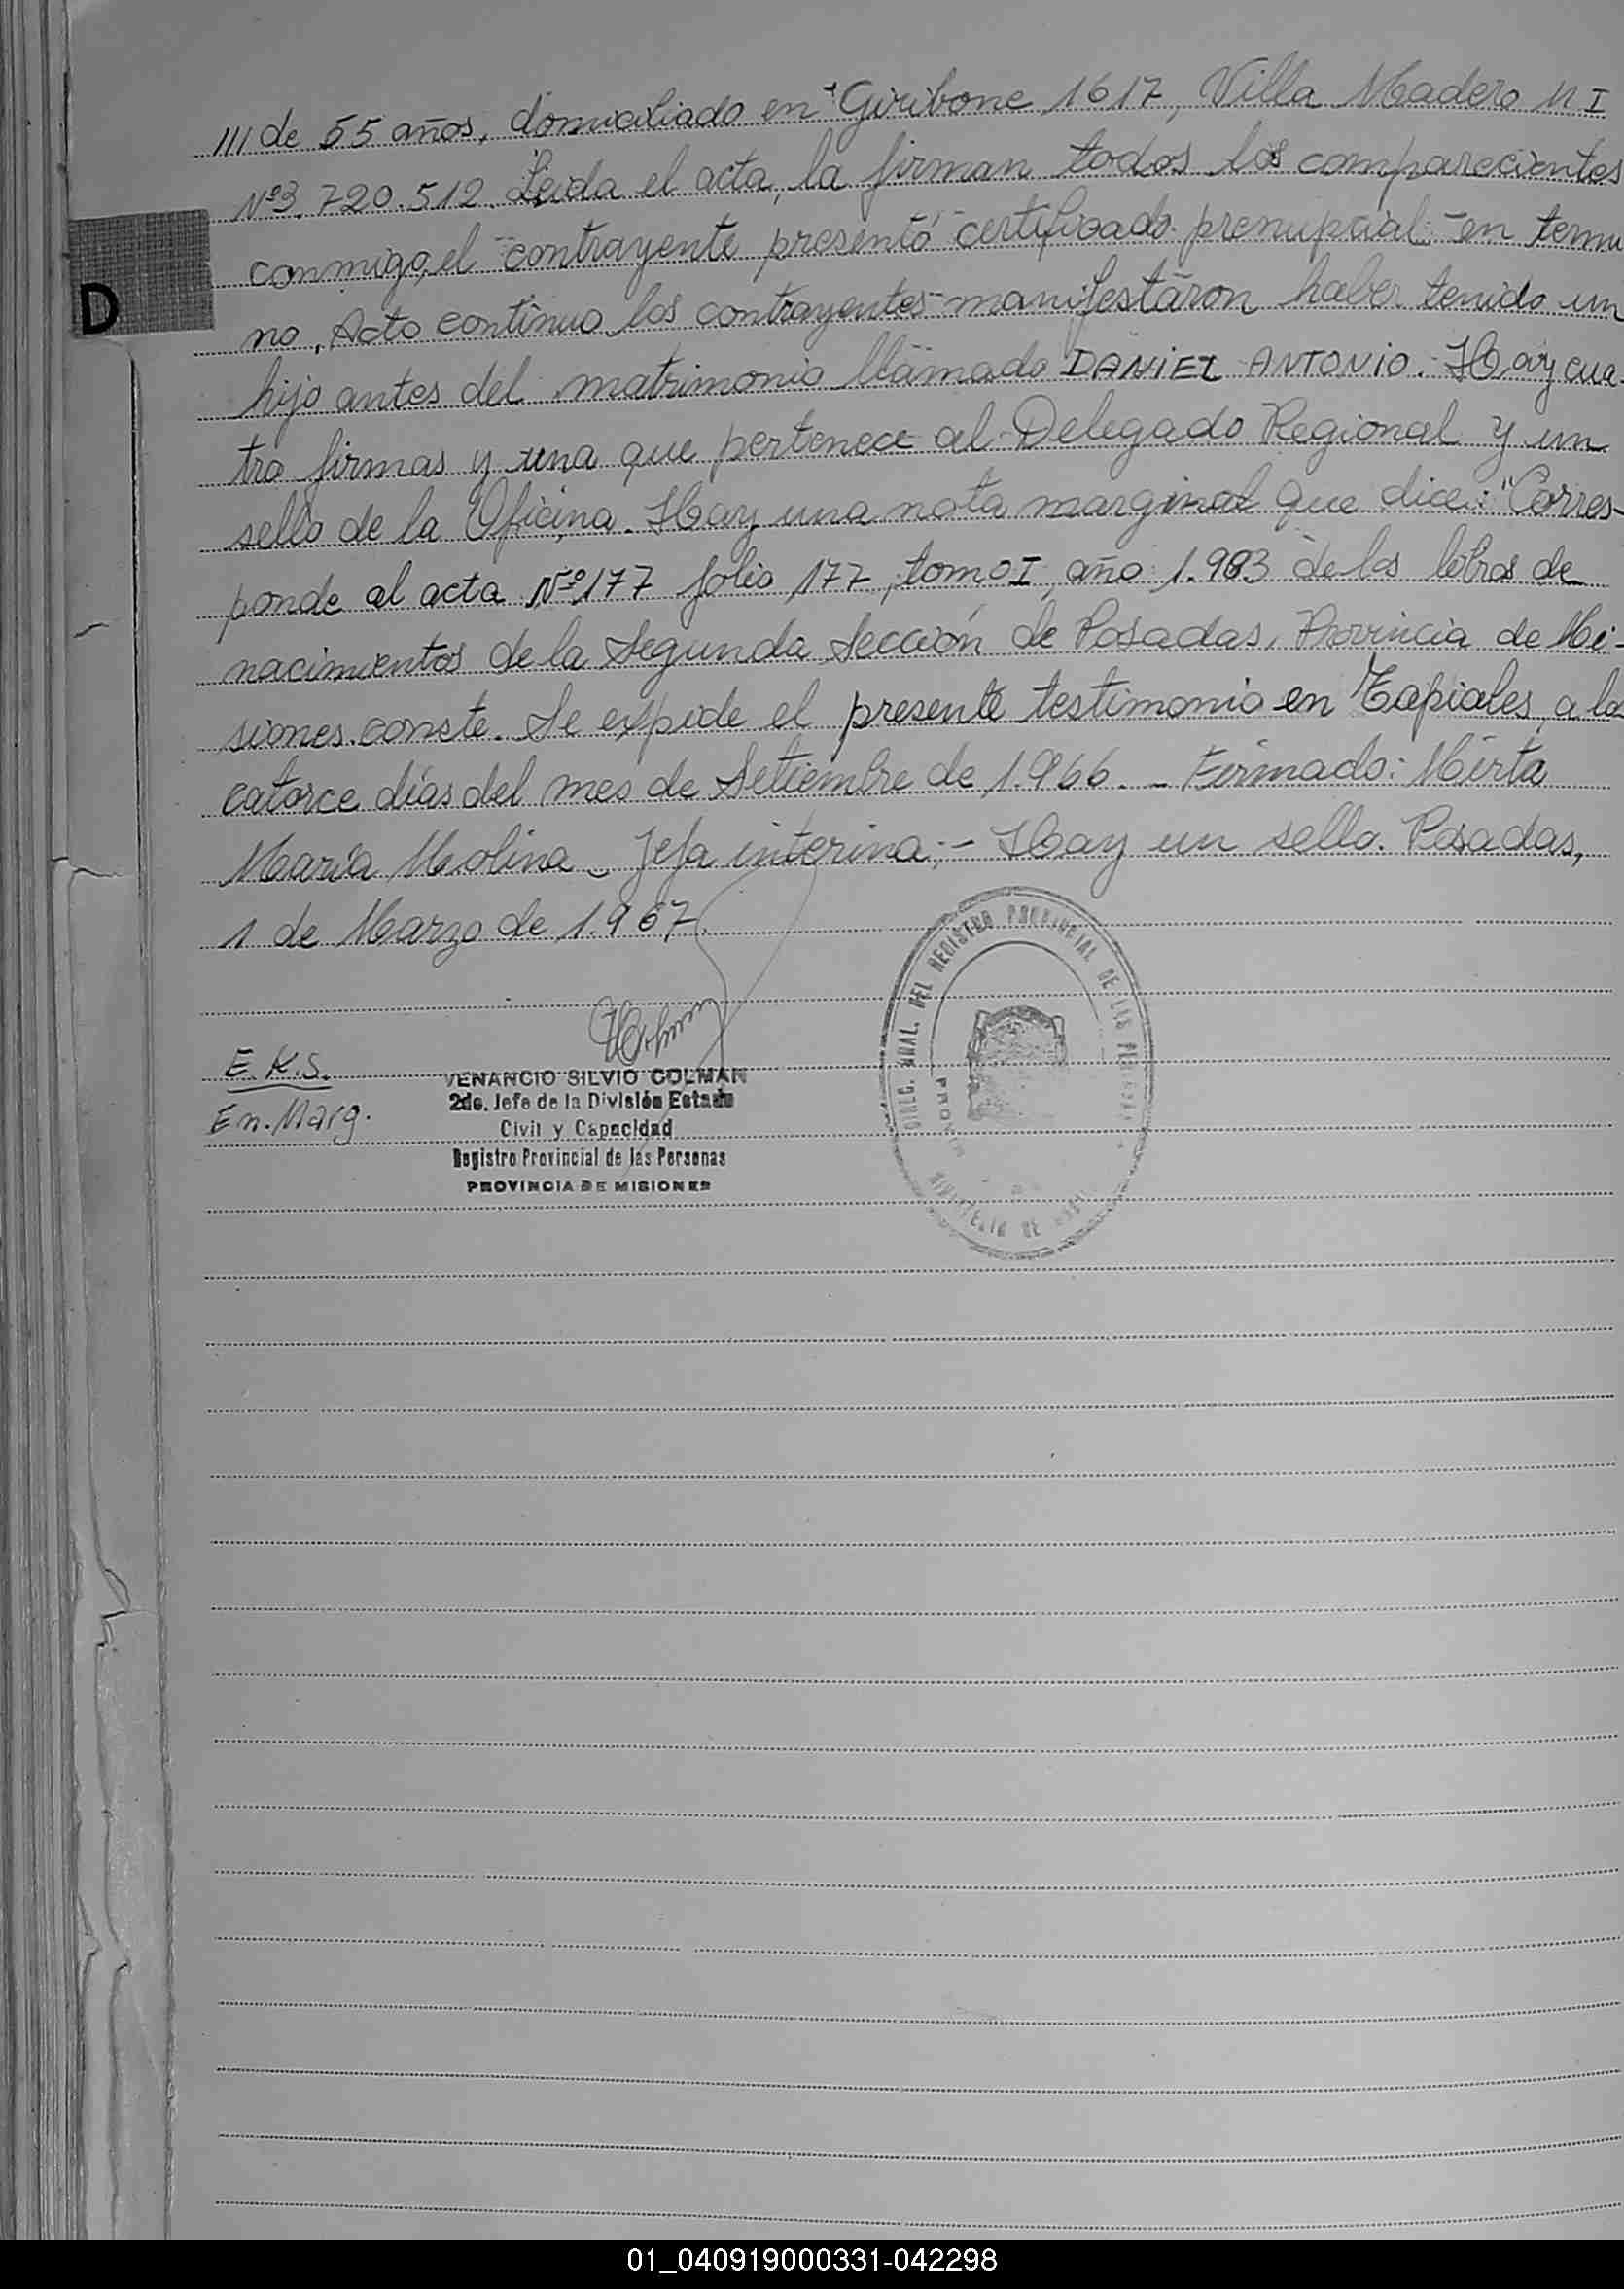 III de 55 años, domiciliado en Giribone 1617, Villa Madero M I
Nº3.720.512. Leida el acta, la firman todos los comparecientes
conmigo, el contrayente presentó certificado prenupcial en termi
no, Acto continuo los contrayentes manifestaron haber tenido un
hijo antes del matrimonio llamado DANIEL ANTONIO. Hay cua-
tro firmas y una que pertenece al Delegado Regional y un
sello de la Oficina. Hay una nota marginal que dice: "Corres-
ponde al acta Nº177 folio 177, tomo I, año de los libros de
nacimientos de la Segunda Sección de Posadas, Provincia de Mi-
siones. conste. Se expide el presente testimonio en Tapiales, a los
catorce días del mes de Setiembre de 1.966. - Firmado: Mirta
María Molina - Jefa interina;- Hay un sello. Posadas,
1 de Marzo de 1.967.
E.K.S.
En. Marg.
VENANCIO SILVIO COLMAN
2do. Jefe de la División Estado
Civil y Capacidad
Registro Provincial de las Personas
PROVINCIA DE MISIONES
DIREC. GRAL. DEL REGISTRO PROVINCIAL DE LAS PERSONAS
MINISTERIO DE
D
01_040919000331-042298